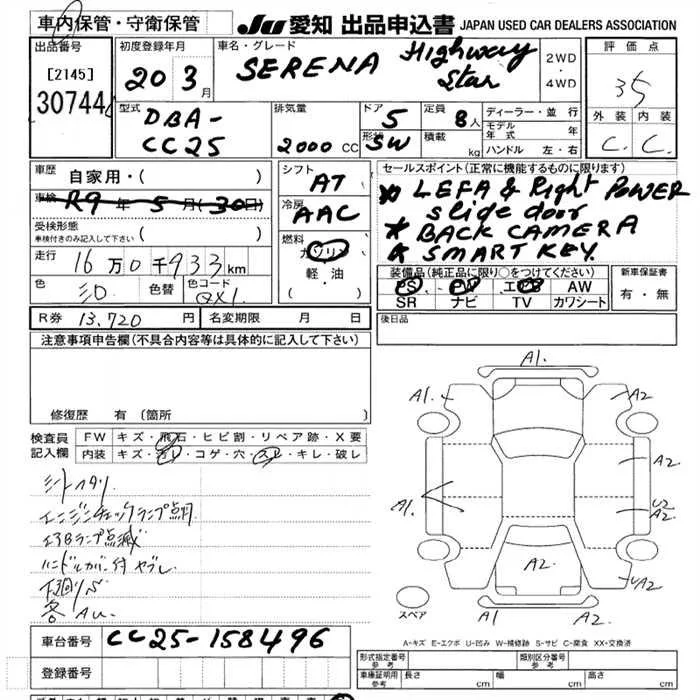 車内保管・守衛保管
JU 愛知 出品申込書 JAPAN USED CAR DEALERS ASSOCIATION
出品番号
[2145]
30744
初度登録年月
20 3月
車名・グレード
SERENA Highway Star
2WD・4WD
評価点
35
外装 内装
C. C.
型式
DBA-
CC25
排気量
2000 CC
ドア
5
形状
SW
定員
8人
積載
kg
ディーラー・並行
モデル年式 年
ハンドル 左・右
車歴 自家用・( )
車検 R9年 5月(30日)
受検形態
車検付きのみ記入して下さい ( )
走行 16万0千933km
色 シロ 色替 色コード QX1
R券 13,720円 名変期限 月 日
シフト
AT
冷房
AAC
燃料
ガソリン
軽・油
( )
セールスポイント(正常に機能するものに限ります)
* LEFA & Right POWER
slide door
* BACK CAMERA
* SMART KEY.
装備品(純正品に限り○をつけてください)
PS PW エアB AW
SR ナビ TV カワシート
新車保証書
有・無
後日品
注意事項申告欄(不具合内容等は具体的に記入して下さい)
修復歴 有(箇所
検査員記入欄
FW キズ・飛石・ヒビ割・リペア跡・X要
内装 キズ・ヨゴレ・コゲ・穴・スレ・キレ・破レ
シートヘタリ
エンジンチェックランプ点灯
エアBランプ点滅
ハンドルカバー付 ヤブレ
下廻りS
各AU
A1.
A1. A2
A2.
A1. U2
A2
A2.
UA2
A1 A2
スペア
A-キズ E-エクボ U-凹み W-補修跡 S-サビ C-腐食 XX-交換済
車台番号 CC25-158496
登録番号
形式指定番号
参考
類別区分番号
参考
車庫証明用
参考
長さ cm 幅 cm 高さ cm